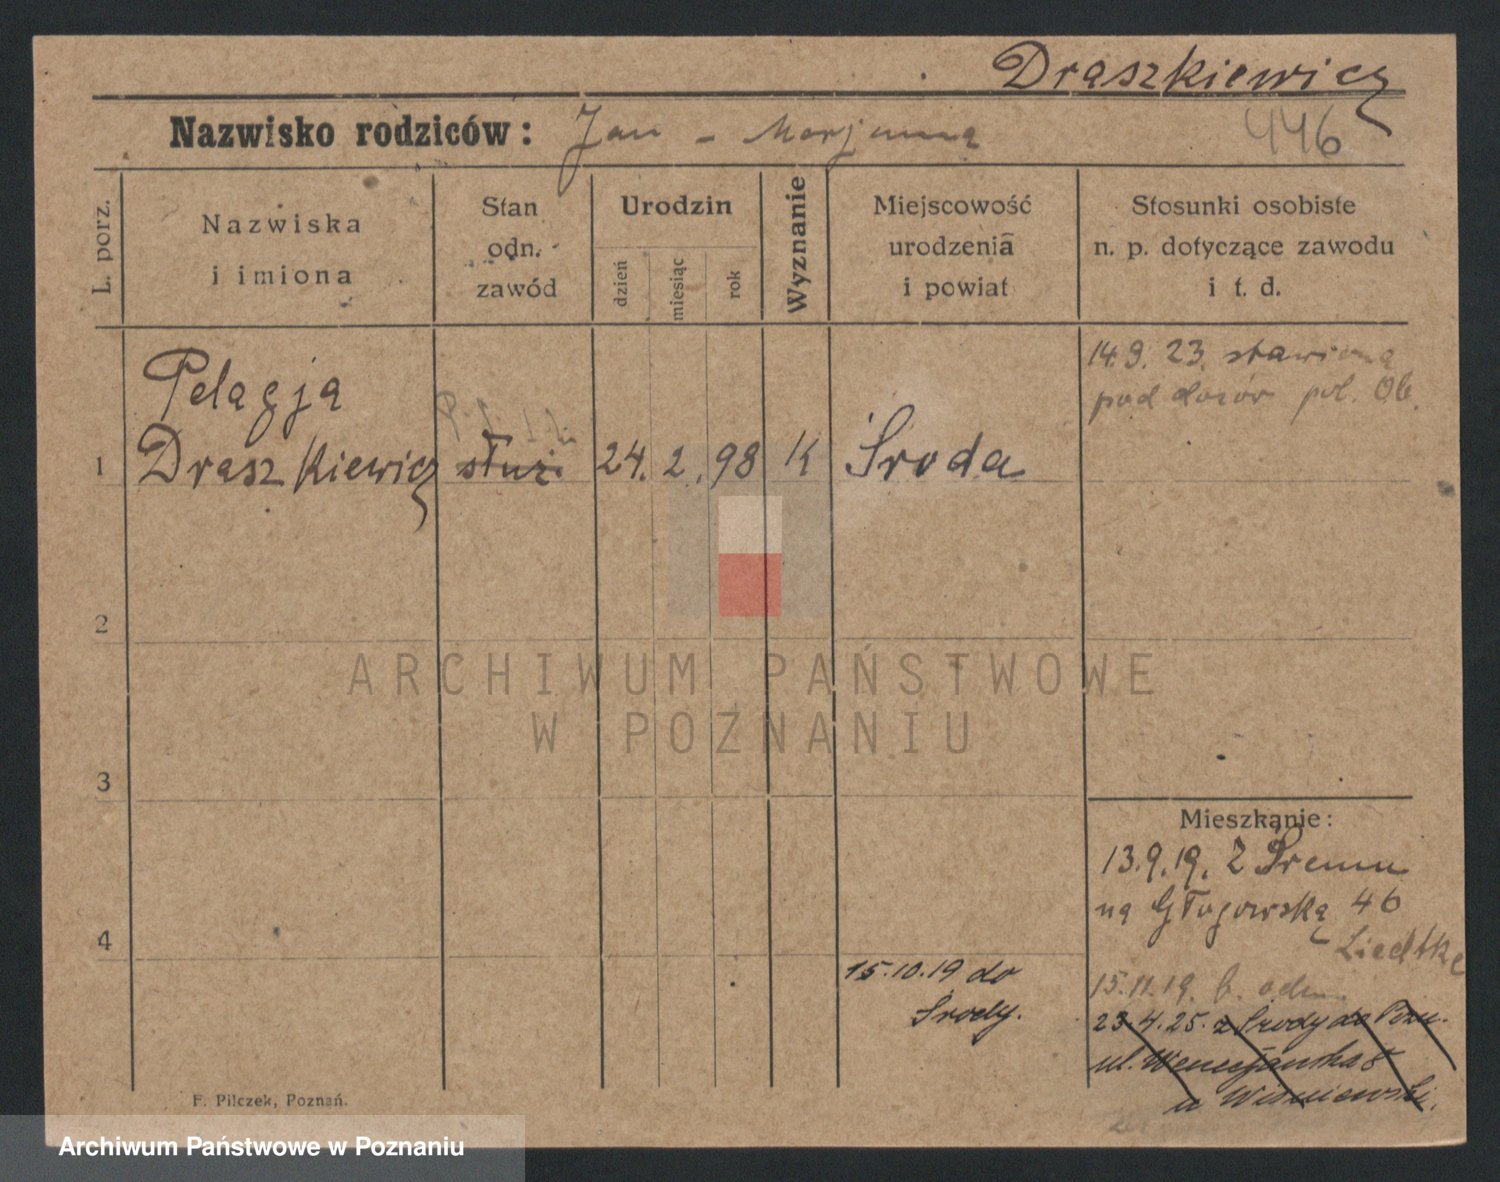 Draszkiewicz
Nazwisko rodziców: Jan - Marjanna
446
L. porz.
Nazwiska
i imiona
Stan
odn.
zawód
Urodzin
dzień
miesiąc
rok
Wyznanie
Miejscowość
urodzenia
i powiat
Stosunki osobiste
n. p. dotyczące zawodu
i t. d.
14.9.23. stawiona
pod dozór pol. Ob.
Pelagja
1 Draszkiewicz służ. 24. 2. 98 K Środa
2
3
4
Mieszkanie:
13.9.19. Z Śremu
na Głogowską 46
Liedtke
15.11.19. b. odm.
15.10.19 do
Środy.
23.4.25. z Środy do Pozn.
ul. Wenecjańska 8
u Wiśniewski.
F. Pilczek, Poznań.
ARCHIWUM PAŃSTWOWE
W POZNANIU
Archiwum Państwowe w Poznaniu